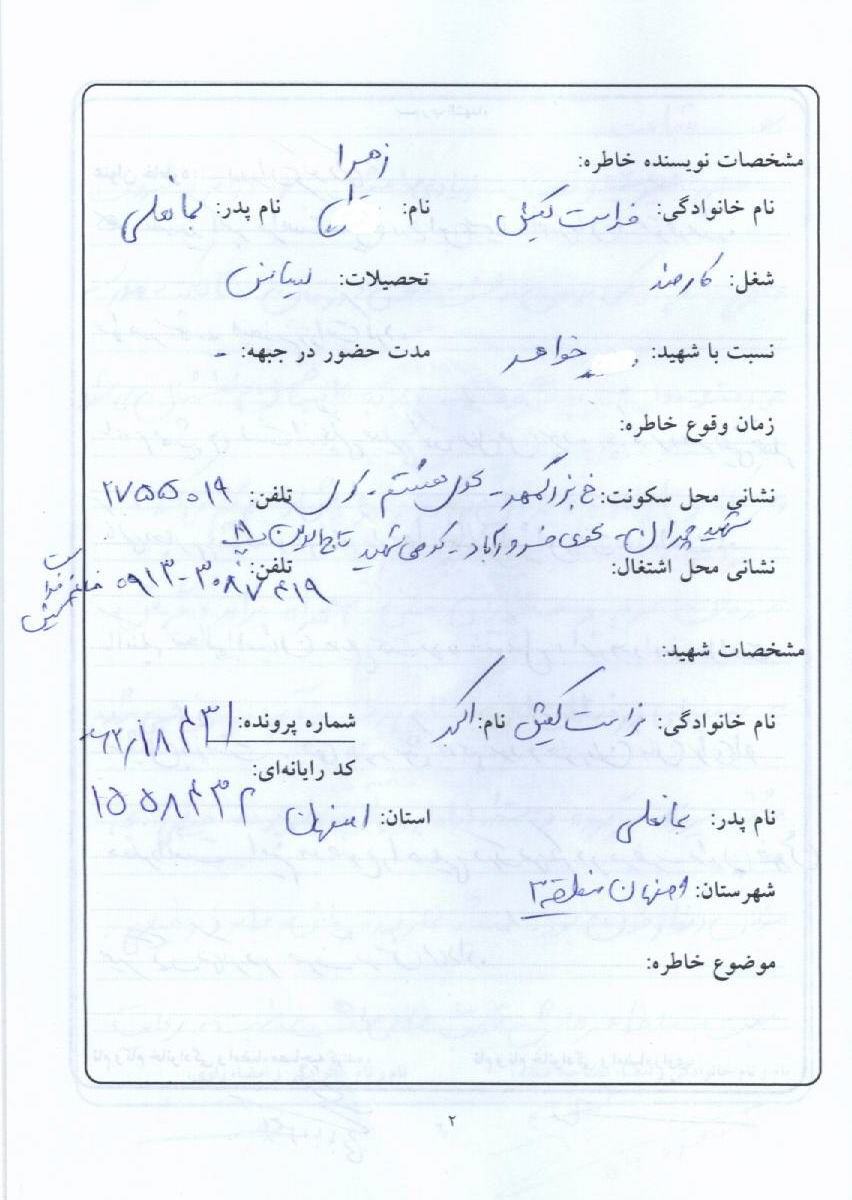 مشخصات نویسنده خاطره:
زهرا
نام خانوادگی: فراست کیش نام: نام پدر: بمانعلی
شغل: کارمند تحصیلات: لیسانس
نسبت با شهید: خواهر مدت حضور در جبهه: -
زمان وقوع خاطره:
نشانی محل سکونت: خ بزرگمهر - کوی هشتم - تلفن: ۲۷۵۵۰۱۹
شهید - کوی خسروآباد - کوچه شهید
نشانی محل اشتغال: تلفن: ۰۹۱۳-۳۰۸۷۴۱۹ خانم فراست کیش
مشخصات شهید:
نام خانوادگی: فراست کیش نام: اکبر شماره پرونده:
کد رایانه‌ای: ۱۵۵۸۴۳۲
نام پدر: بمانعلی استان: اصفهان
شهرستان: اصفهان منطقه ۳
موضوع خاطره:
۲